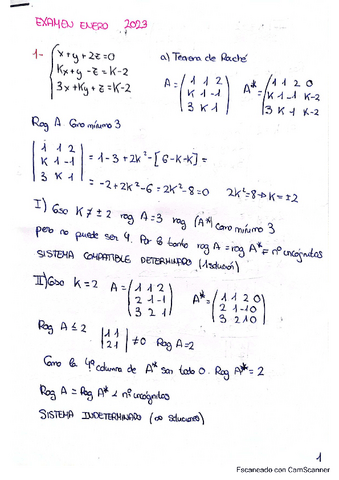 EXAMEN ENERO 2023
1- { x+y+2z=0
Kx+y-z=K-2
3x+Ky+z=K-2
a) Teorema de Rouché
A = (1 1 2 / K 1 -1 / 3 K 1) A* = (1 1 2 0 / K 1 -1 K-2 / 3 K 1 K-2)
Rag A. Como mínimo 3
|1 1 2 / K 1 -1 / 3 K 1| = 1-3+2K²-[6-K-K] =
= -2+2K²-6 = 2K²-8=0 2K²=8→K=±2
I) Caso K≠±2 rag A=3 rag (A*) como mínimo 3
pero no puede ser 4. Por lo tanto rag A = rag A* = nº incógnitas
SISTEMA COMPATIBLE DETERMINADO. (1 solución)
II) Caso K=2 A = (1 1 2 / 2 1 -1 / 3 2 1) A* = (1 1 2 0 / 2 1 -1 0 / 3 2 1 0)
Rag A ≤ 2 |1 1 / 2 1| ≠0 Rag A=2
Como la 4ª columna de A* son todo 0. Rag A* = 2
Rag A = Rag A* < nº incógnitas
SISTEMA INDETERMINADO (∞ soluciones)
1
Escaneado con CamScanner